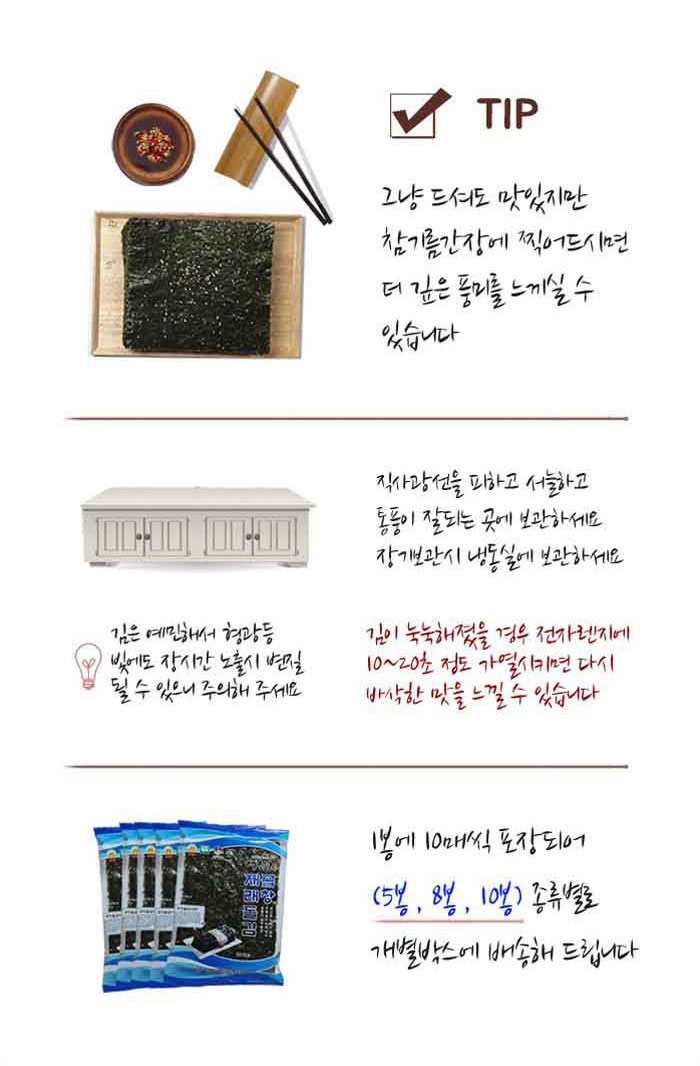 TIP
그냥 드셔도 맛있지만
참기름간장에 찍어드시면
더 깊은 풍미를 느끼실 수
있습니다
직사광선을 피하고 서늘하고
통풍이 잘되는 곳에 보관하세요
장기보관시 냉동실에 보관하세요
김은 예민해서 형광등
빛에도 장시간 노출시 변질
될 수 있으니 주의해 주세요
김이 눅눅해졌을 경우 전자렌지에
10~20초 정도 가열시키면 다시
바삭한 맛을 느낄 수 있습니다
1봉에 10매씩 포장되어
(5봉, 8봉, 10봉) 종류별로
개별박스에 배송해 드립니다
곱창
재래돌김